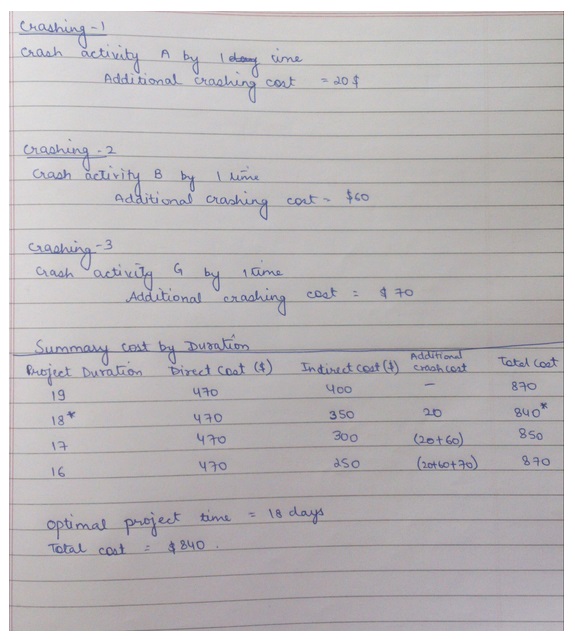 Crashing-1
Crash activity A by 1 time
Additional crashing cost = 20 $
Crashing-2
Crash activity B by 1 time
Additional crashing cost = $60
Crashing-3
Crash activity G by 1 time
Additional crashing cost = $70
Summary Cost by Duration
Project Duration Direct Cost ($) Indirect Cost ($) Additional Crash Cost Total Cost
19 470 400 — 870
18* 470 350 20 840*
17 470 300 (20+60) 850
16 470 250 (20+60+70) 870
Optimal project time = 18 days
Total cost = $840.